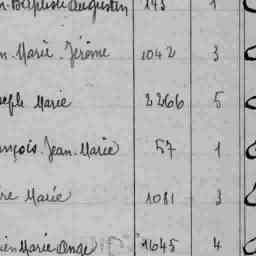 n. Baptiste Augustin 143 1
n. Marie. Jérôme 1042 3
seph Marie 2266 5
ançois. Jean. Marie 57 1
re Marie 1081 3
ien Marie Ange 1645 4